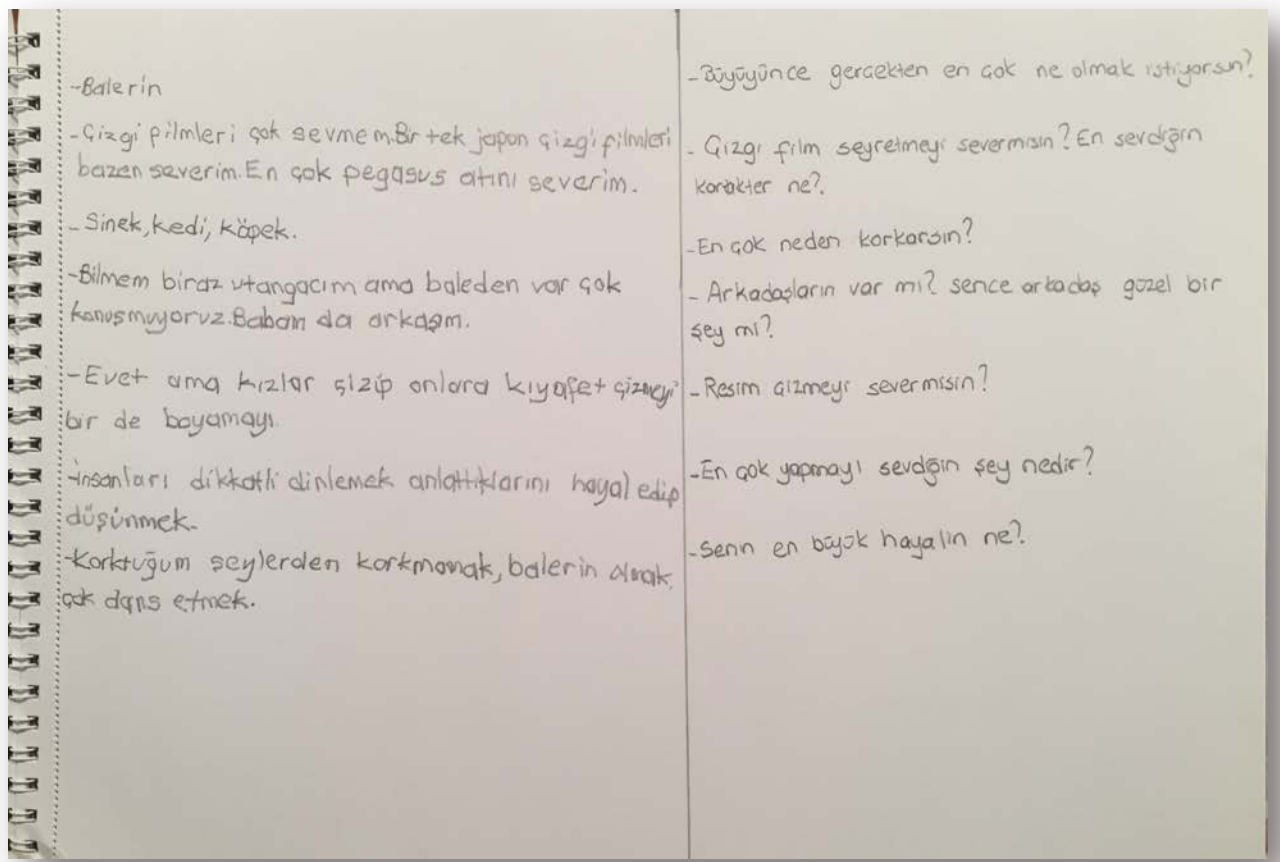 -Balerin
-Çizgi filmleri çok sevmem.Bir tek japon çizgi filmleri
bazen severim.En çok pegasus atını severim.
-Sinek,kedi,köpek.
-Bilmem biraz utangacım ama baleden var çok
konuşmuyoruz.Babam da arkaşım.
-Evet ama kızlar çizip onlara kıyafet çizmeyi
bir de boyamayı.
-İnsanları dikkatli dinlemek anlattıklarını hayal edip
düşünmek.
-Korktuğum şeylerden korkmamak,balerin olmak,
çok dans etmek.
-Büyüyünce gerçekten en çok ne olmak istiyorsun?
-Çizgi film seyretmeyi severmisin?En sevdiğin
karakter ne?.
-En çok neden korkarsın?
-Arkadaşların var mı? sence arkadaş güzel bir
şey mi?
-Resim çizmeyi severmisin?
-En çok yapmayı sevdğin şey nedir?
-Senin en büyük hayalin ne?